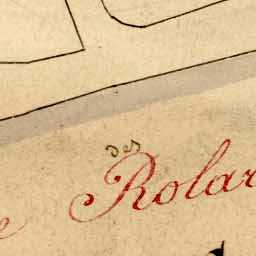 des
e Rolar